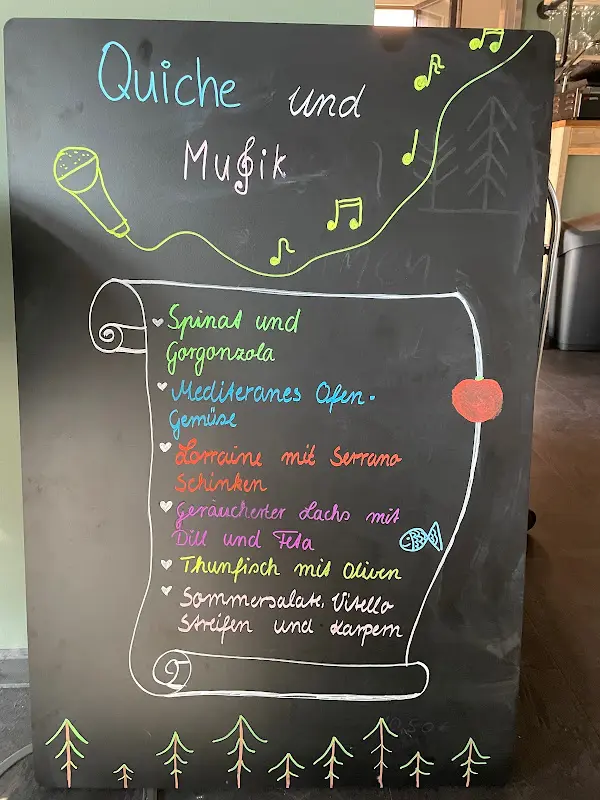 Quiche und
Musik
Spinat und
Gorgonzola
Mediteranes Ofen-
Gemüse
Lorraine mit Serrano
Schinken
Geräucherter Lachs mit
Dill und Feta
Thunfisch mit Oliven
Sommersalate, Vitello
Streifen und Karpern